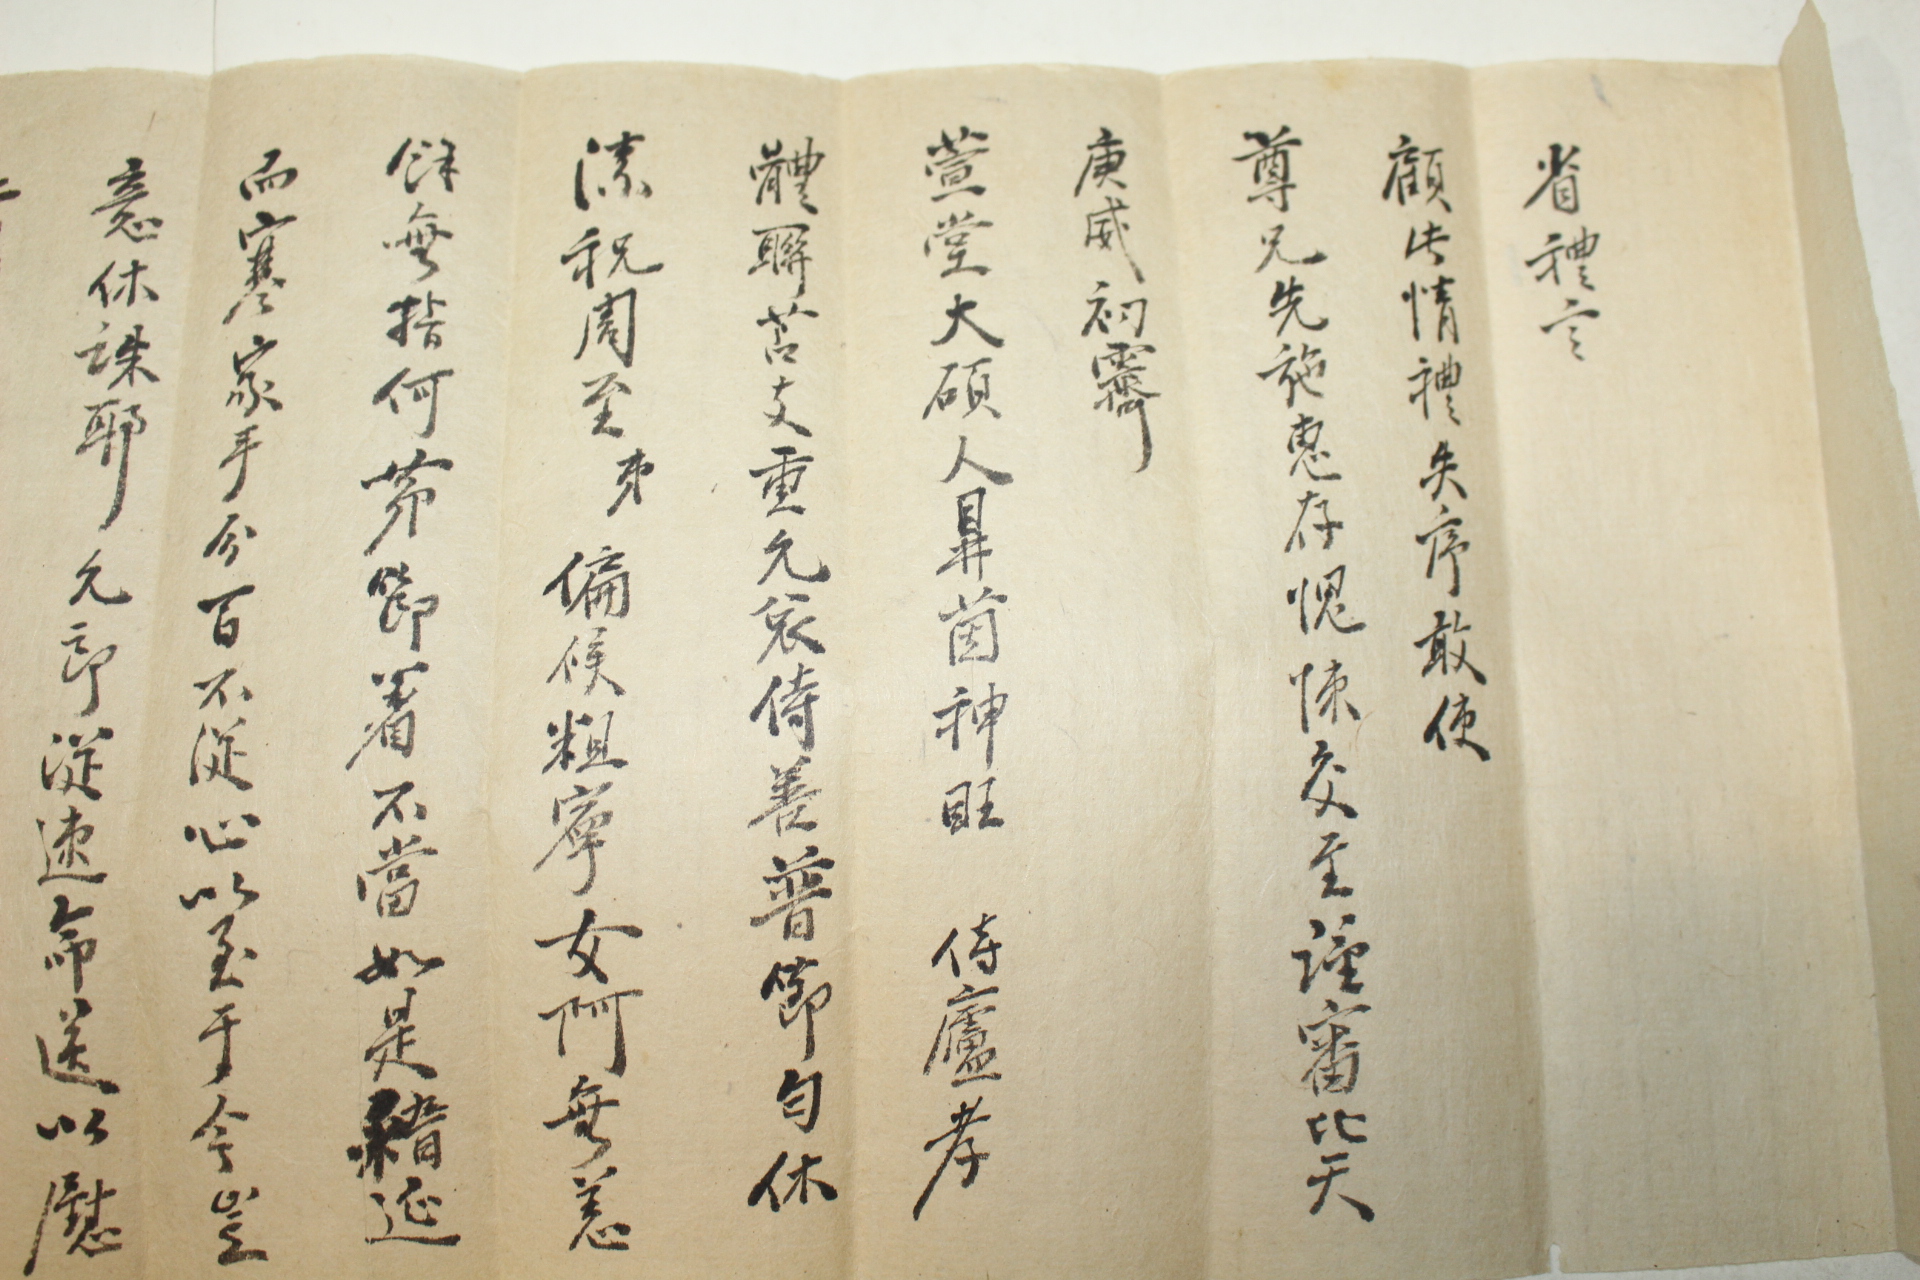 省禮言
顧此情禮失序敢使
尊兄先施惠存愧悚交至謹審比天
庚威初霽
萱堂大碩人鼻茵神旺 侍廬孝
體聯苫支重允哀侍善普節勻休
溸祝周至弟 偏候粗寧女阿無恙
餘無指何第節着不當如是稽延
而寒家手分百不從心以至于今豈
意休誅耶 允郎從速命送以慰